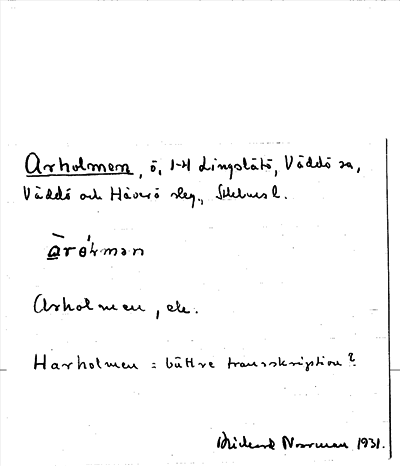 Arholmen, ö, 1-4 Lingslätö, Väddö sn,
Väddö och Häverö slg., Sthlms l.
àrɵ́lmən
Arholmen, ek.
Harholmen = bättre transskription?
Rickard Norrman 1931.